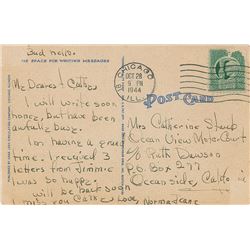 Said hello.
THE SPACE FOR WRITING MESSAGES
My Dearest Cathy
I will write soon
honey, but have been
awfully busy.
I am having a grand
time. I received 3
letters from Jimmie
I was so happy.
will be back soon
I miss you Cathy Love,
Norma Jeane.
CHICAGO
OCT 28
9 PM
1944
ILL.
POST CARD
Mrs Catherine Staub
Ocean View Motor Court
c/o Ruth Dawson
P.O. BOX 277
Oceanside, Calif